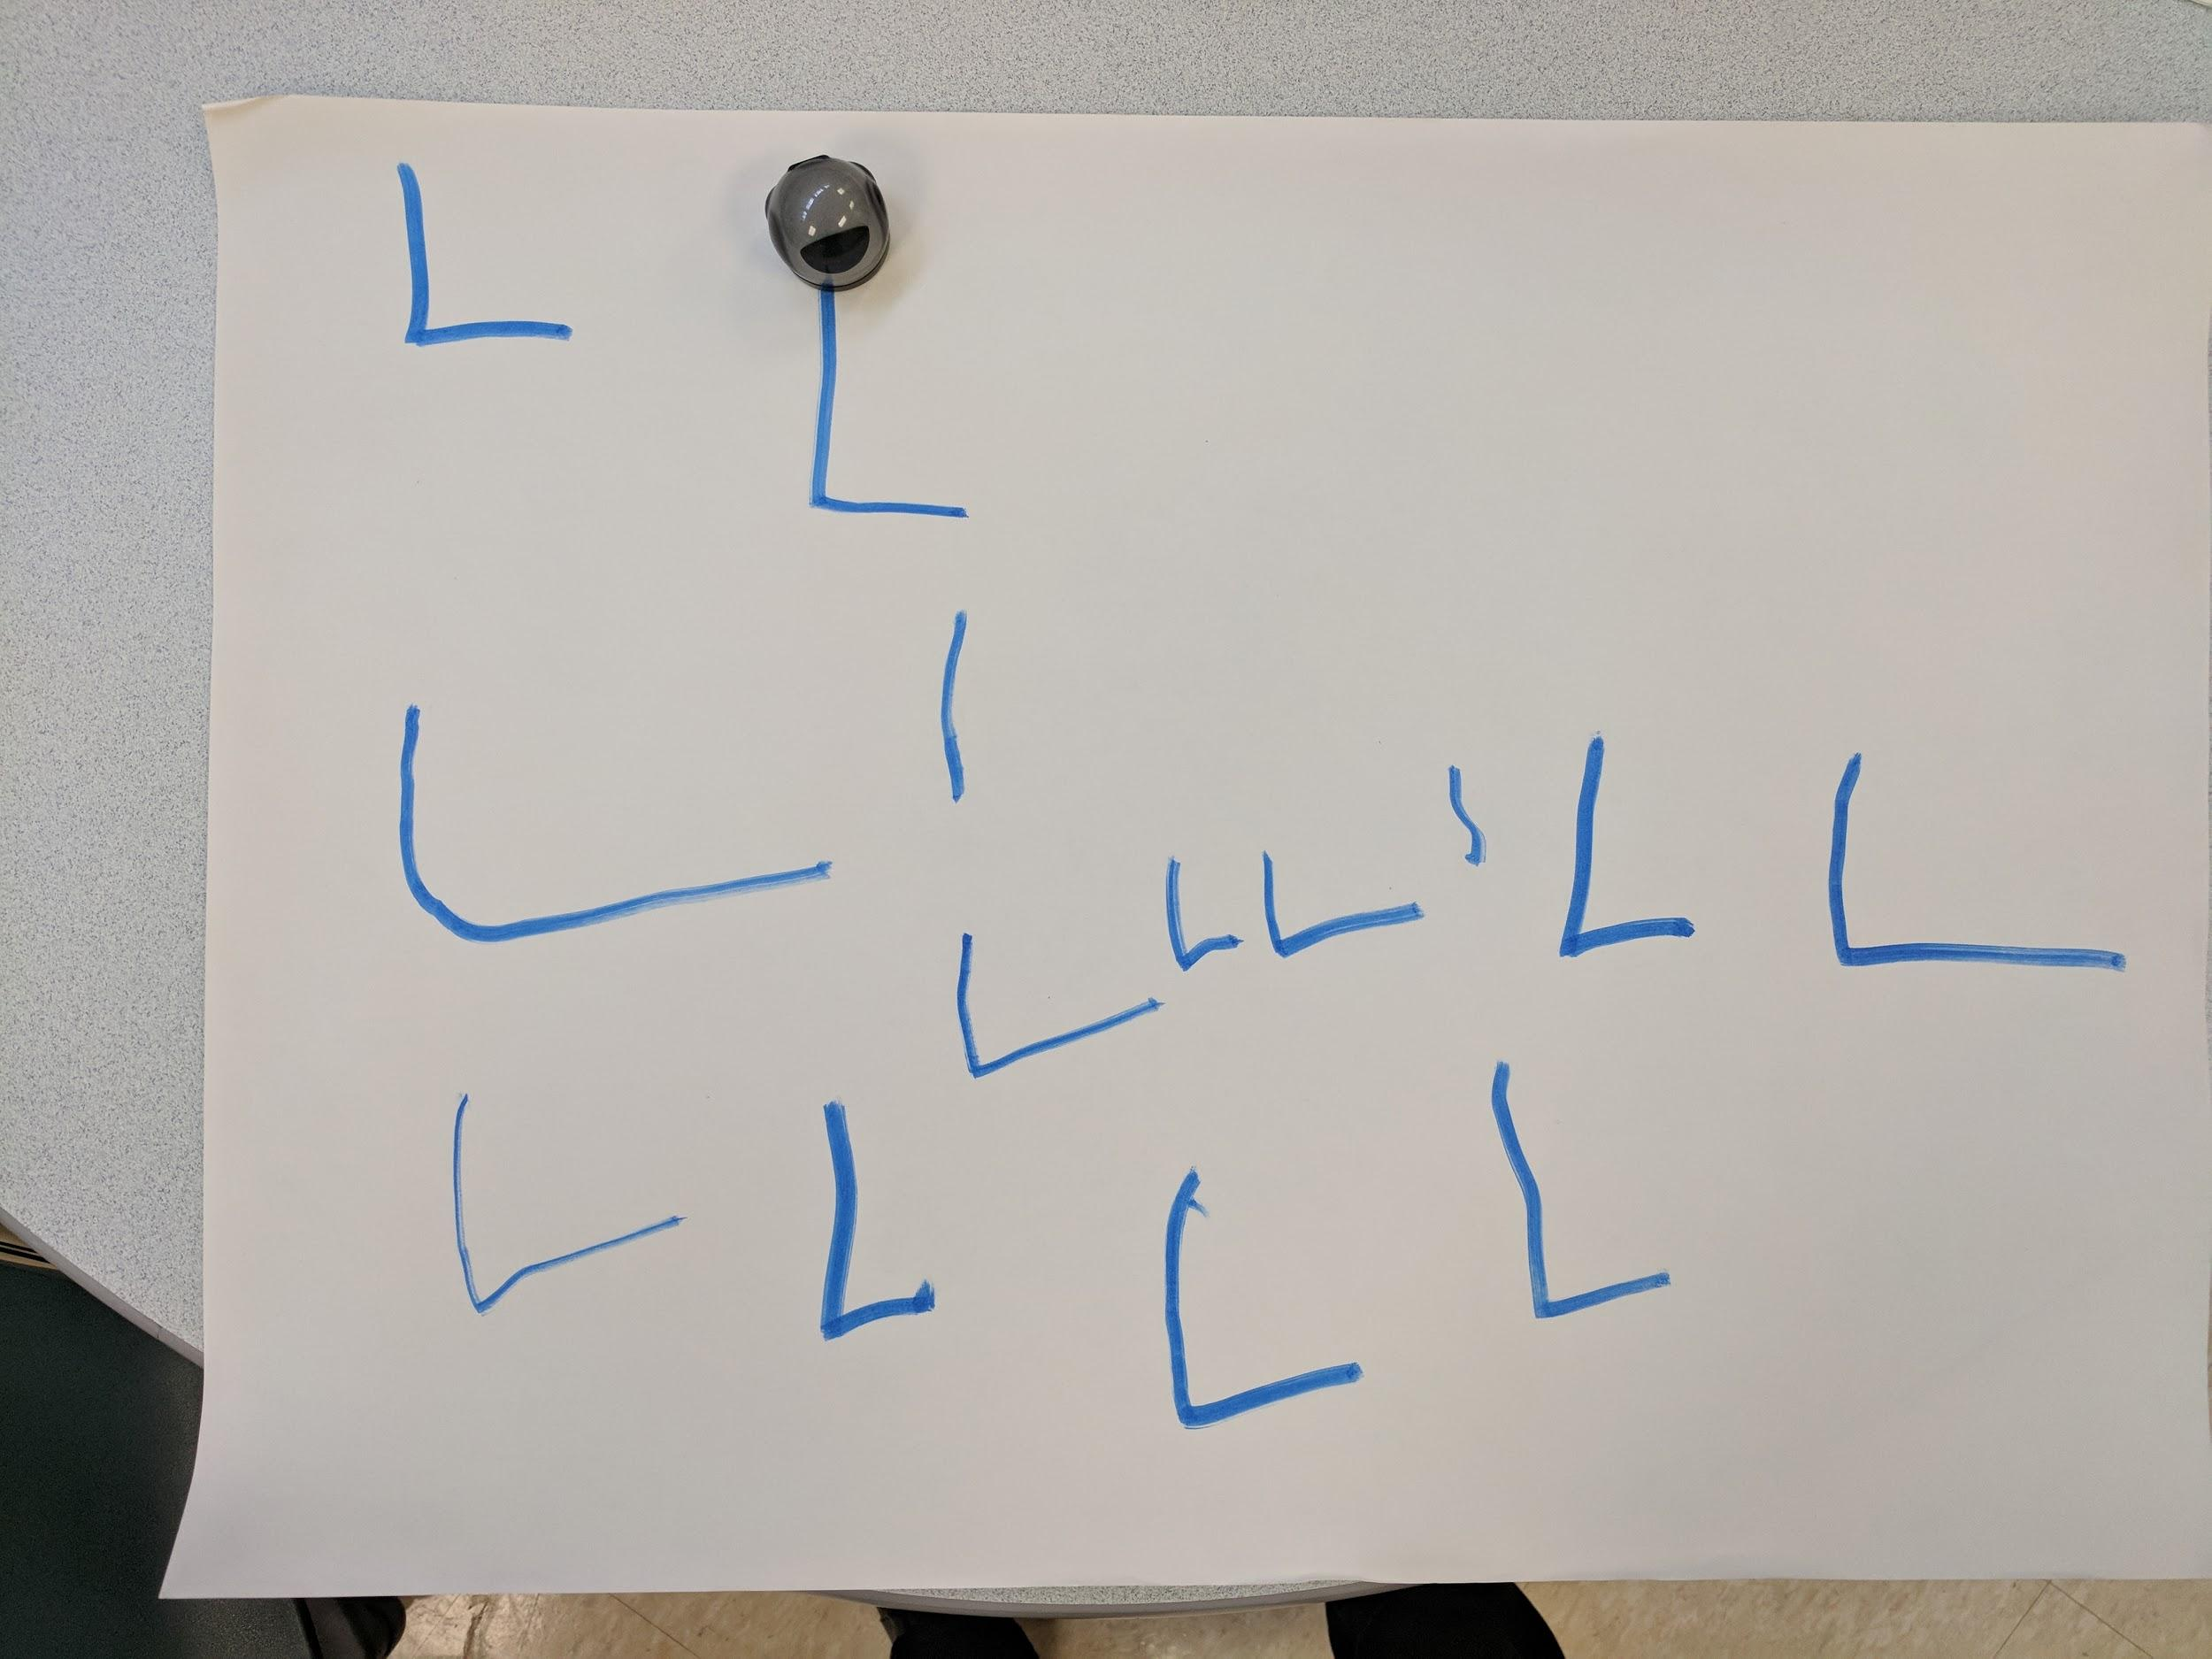 L
L
L L L L L L
L L L L